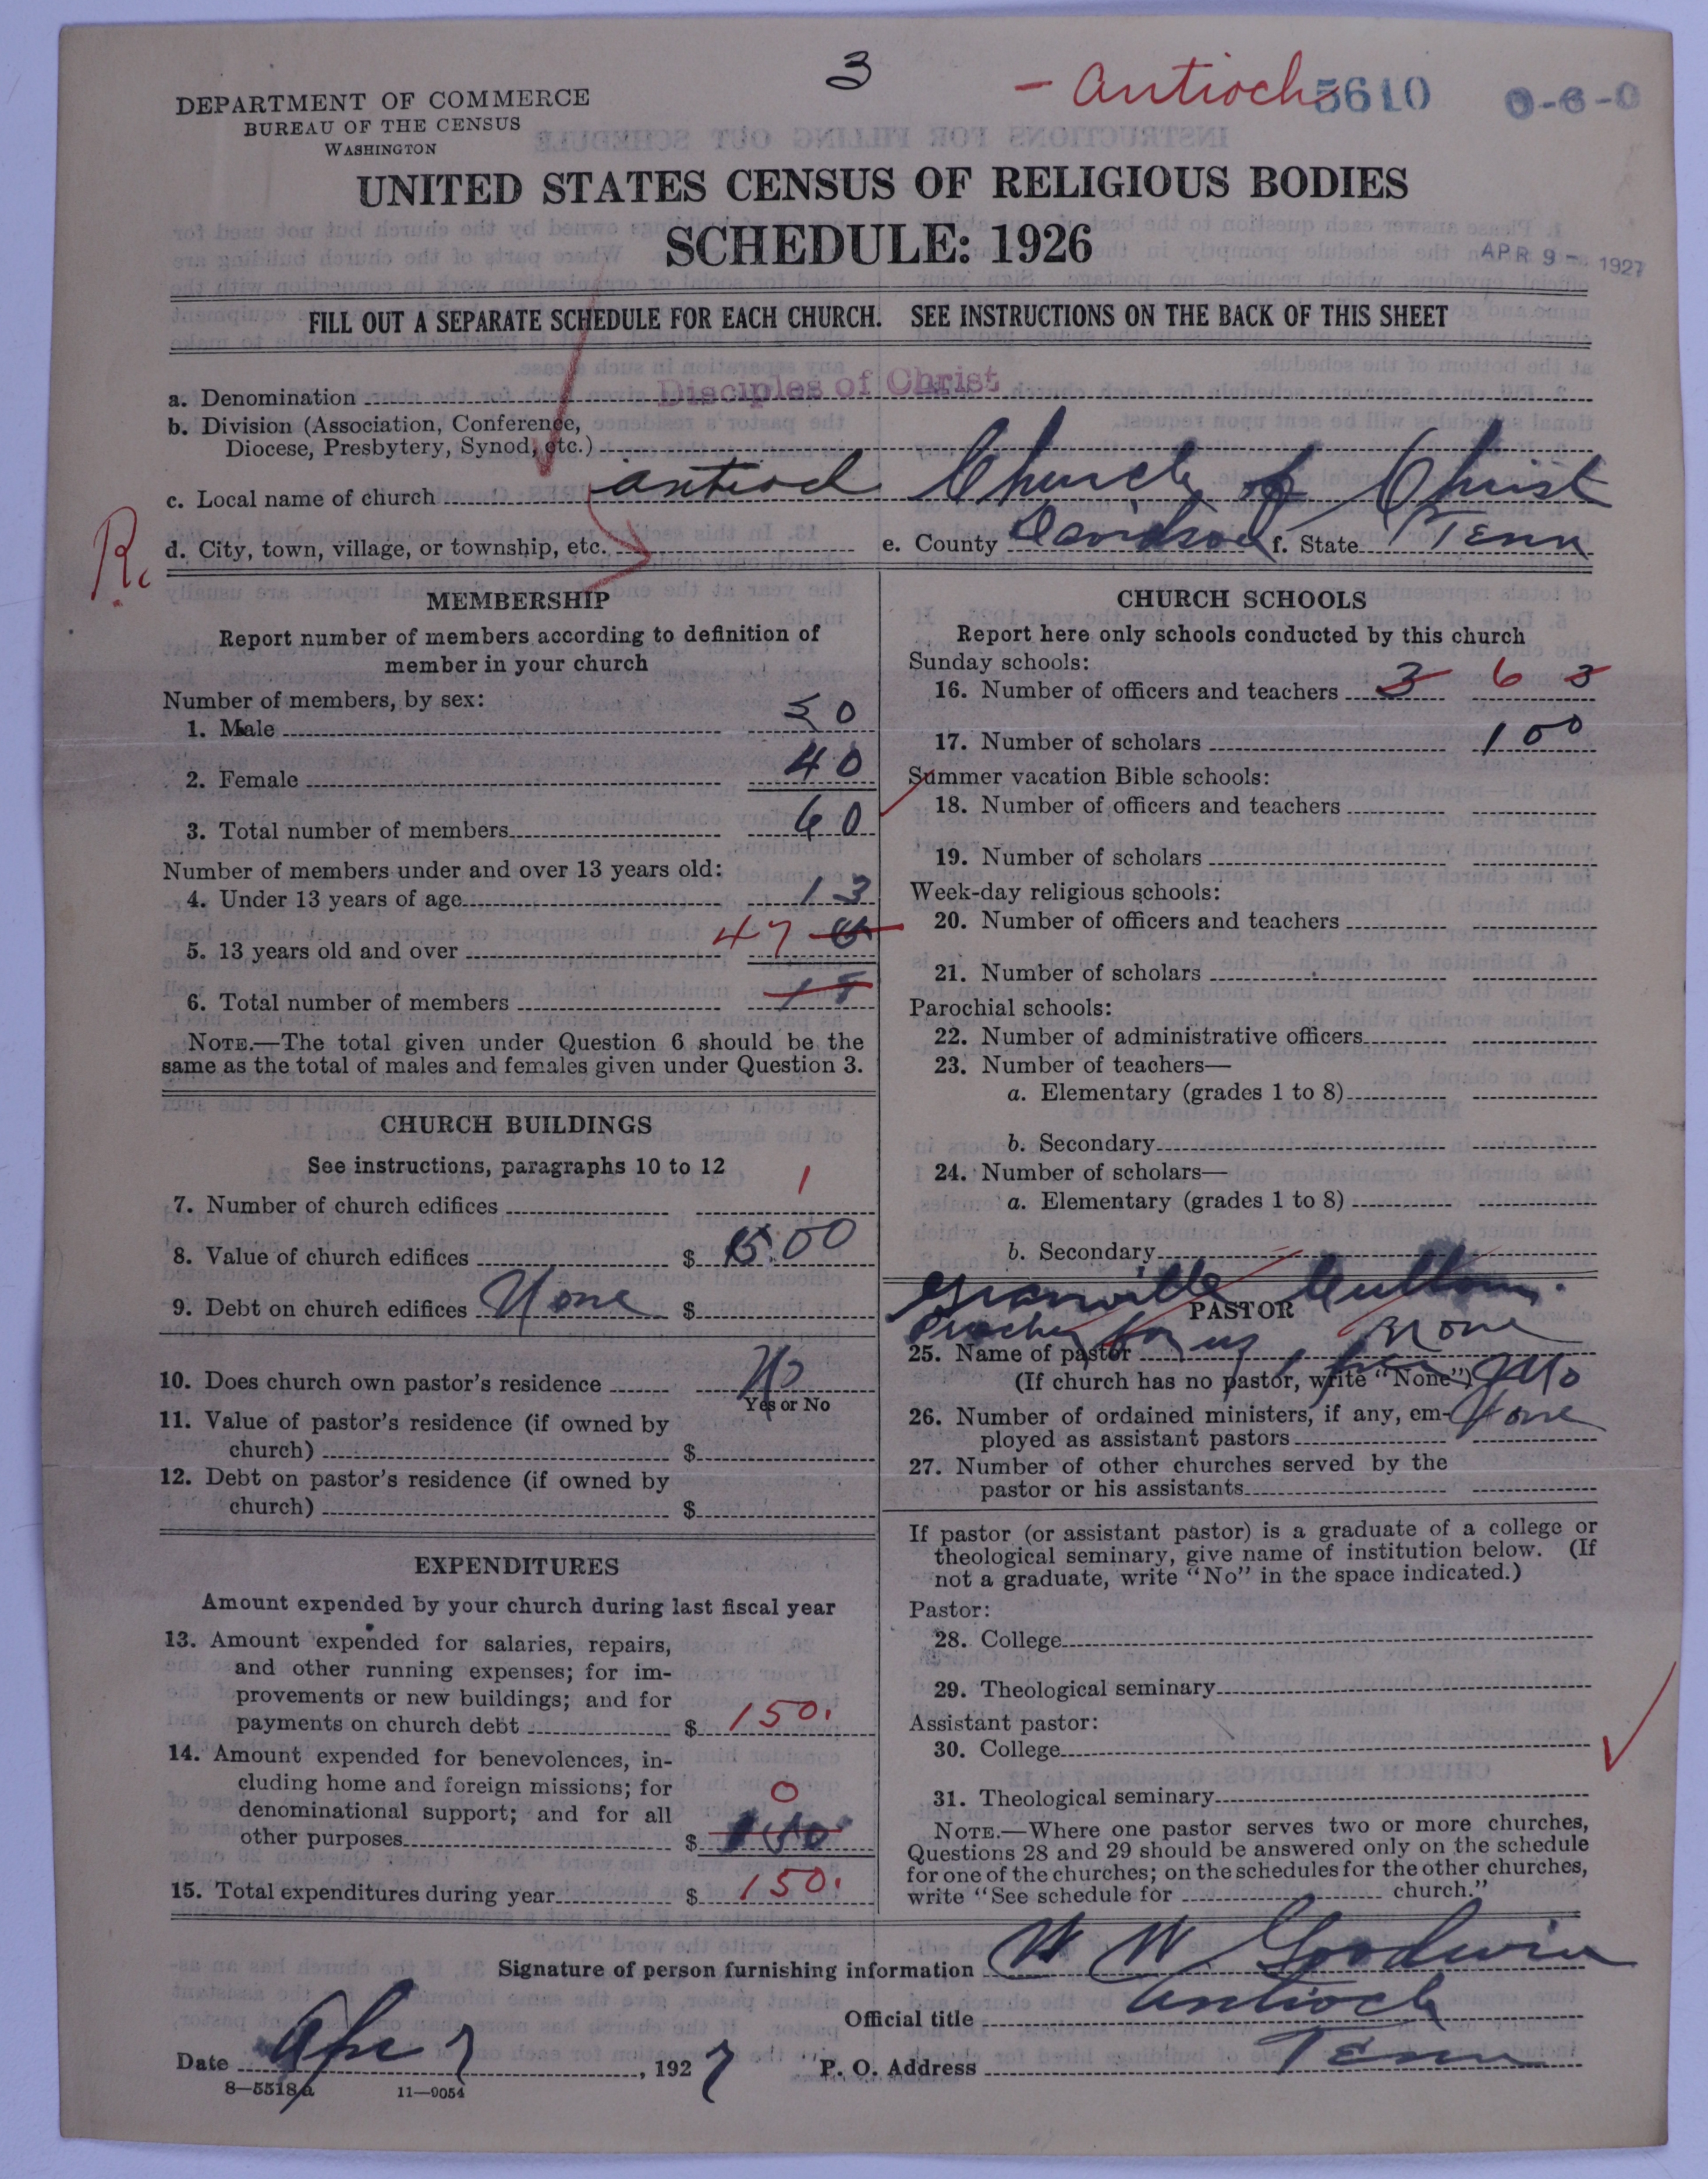 3
- Antioch 5610 0-6-0
DEPARTMENT OF COMMERCE
BUREAU OF THE CENSUS
WASHINGTON
UNITED STATES CENSUS OF RELIGIOUS BODIES
SCHEDULE: 1926
APR 9 - 1927
FILL OUT A SEPARATE SCHEDULE FOR EACH CHURCH. SEE INSTRUCTIONS ON THE BACK OF THIS SHEET
a. Denomination Disciples of Christ
b. Division (Association, Conference,
Diocese, Presbytery, Synod, etc.)
c. Local name of church antioch Church of Christ
R.
d. City, town, village, or township, etc. e. County Davidson f. State Tenn
MEMBERSHIP
Report number of members according to definition of
member in your church
Number of members, by sex:
1. Male 50
2. Female 40
3. Total number of members 60
Number of members under and over 13 years old:
4. Under 13 years of age 13
5. 13 years old and over 47
6. Total number of members 18
NOTE.—The total given under Question 6 should be the
same as the total of males and females given under Question 3.
CHURCH BUILDINGS
See instructions, paragraphs 10 to 12
7. Number of church edifices 1
8. Value of church edifices $ 1500
9. Debt on church edifices None $
10. Does church own pastor's residence No
Yes or No
11. Value of pastor's residence (if owned by
church) $
12. Debt on pastor's residence (if owned by
church) $
EXPENDITURES
Amount expended by your church during last fiscal year
13. Amount expended for salaries, repairs,
and other running expenses; for im-
provements or new buildings; and for
payments on church debt $ 150.
14. Amount expended for benevolences, in-
cluding home and foreign missions; for
denominational support; and for all
other purposes $ 0 150
15. Total expenditures during year $ 150.
CHURCH SCHOOLS
Report here only schools conducted by this church
Sunday schools:
16. Number of officers and teachers 3 6 3
17. Number of scholars 100
Summer vacation Bible schools:
18. Number of officers and teachers
19. Number of scholars
Week-day religious schools:
20. Number of officers and teachers
21. Number of scholars
Parochial schools:
22. Number of administrative officers
23. Number of teachers—
a. Elementary (grades 1 to 8)
b. Secondary
24. Number of scholars—
a. Elementary (grades 1 to 8)
b. Secondary
Granville
PASTOR
for us None
25. Name of pastor
(If church has no pastor, write "None")
26. Number of ordained ministers, if any, em- None
ployed as assistant pastors
27. Number of other churches served by the
pastor or his assistants
If pastor (or assistant pastor) is a graduate of a college or
theological seminary, give name of institution below. (If
not a graduate, write "No" in the space indicated.)
Pastor:
28. College
29. Theological seminary
Assistant pastor:
30. College
31. Theological seminary
NOTE.—Where one pastor serves two or more churches,
Questions 28 and 29 should be answered only on the schedule
for one of the churches; on the schedules for the other churches,
write "See schedule for church."
Signature of person furnishing information W W Goodwin
Official title Antioch
Date Apr 7, 1927 P. O. Address Tenn
8—5518a 11—9054